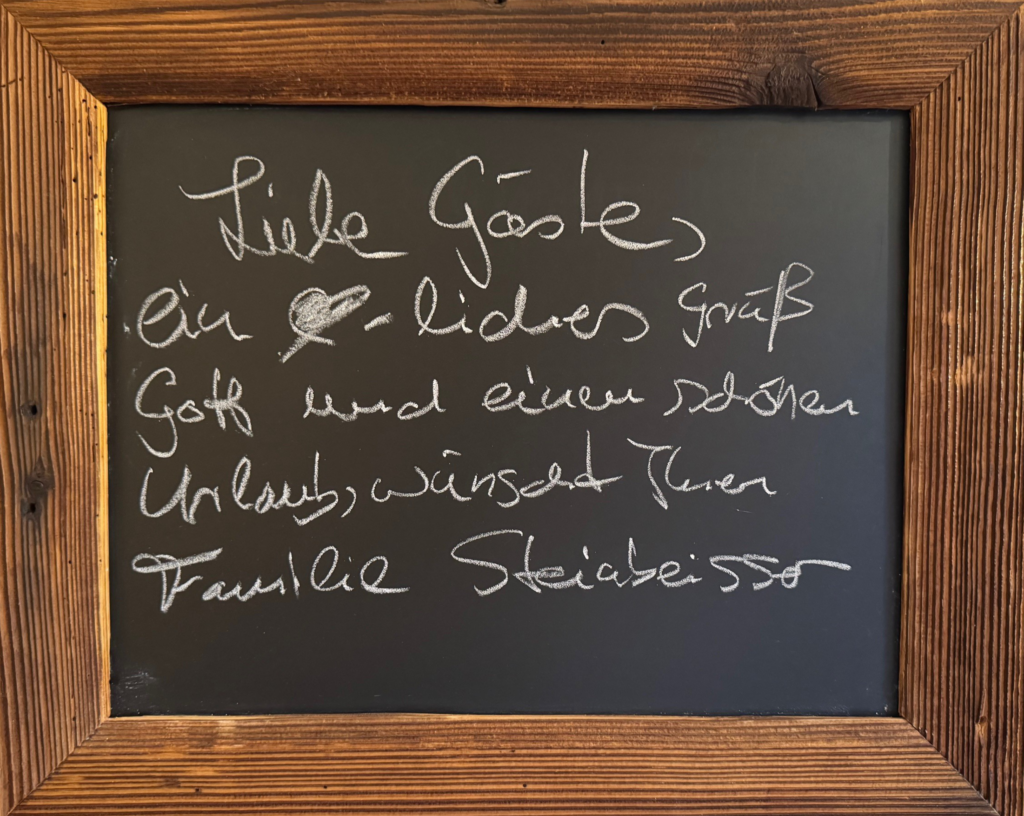 Liebe Gäste,
ein ♥-liches Grüß
Gott und einen schönen
Urlaub, wünscht Ihnen
Familie Steinbeisser